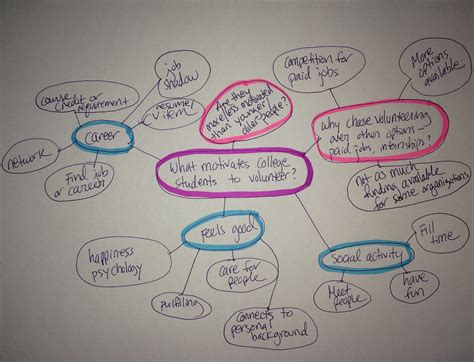 job
shadow
course
credit or
requirement
resume/
v item
career
network
Find job
or career
Are they
more/less motivated
than younger/
older people?
competition for
paid jobs
More
options
available
Why chose volunteering
over other options -
paid jobs, internships?
not as much
funding available
for some organisations
What motivates college
students to volunteer?
Feels good
happiness
psychology
fulfilling
care for
people
connects to
personal
background
social activity
Fill
time
Meet
people
have
fun